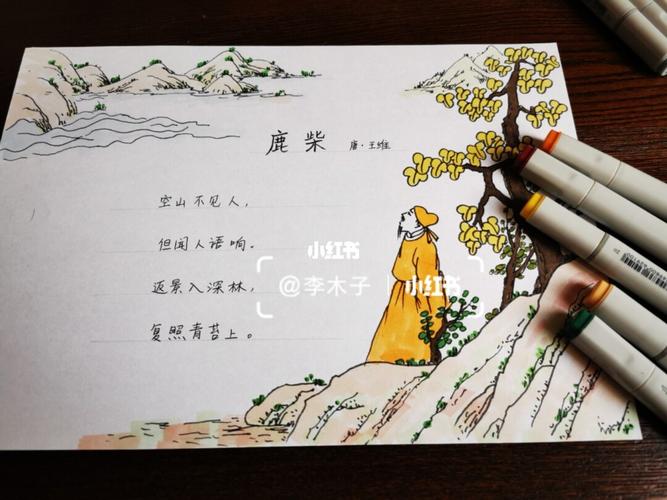 鹿柴 唐·王维
空山不见人，
但闻人语响。
返景入深林，
复照青苔上。
小红书
@李木子 | 小红书